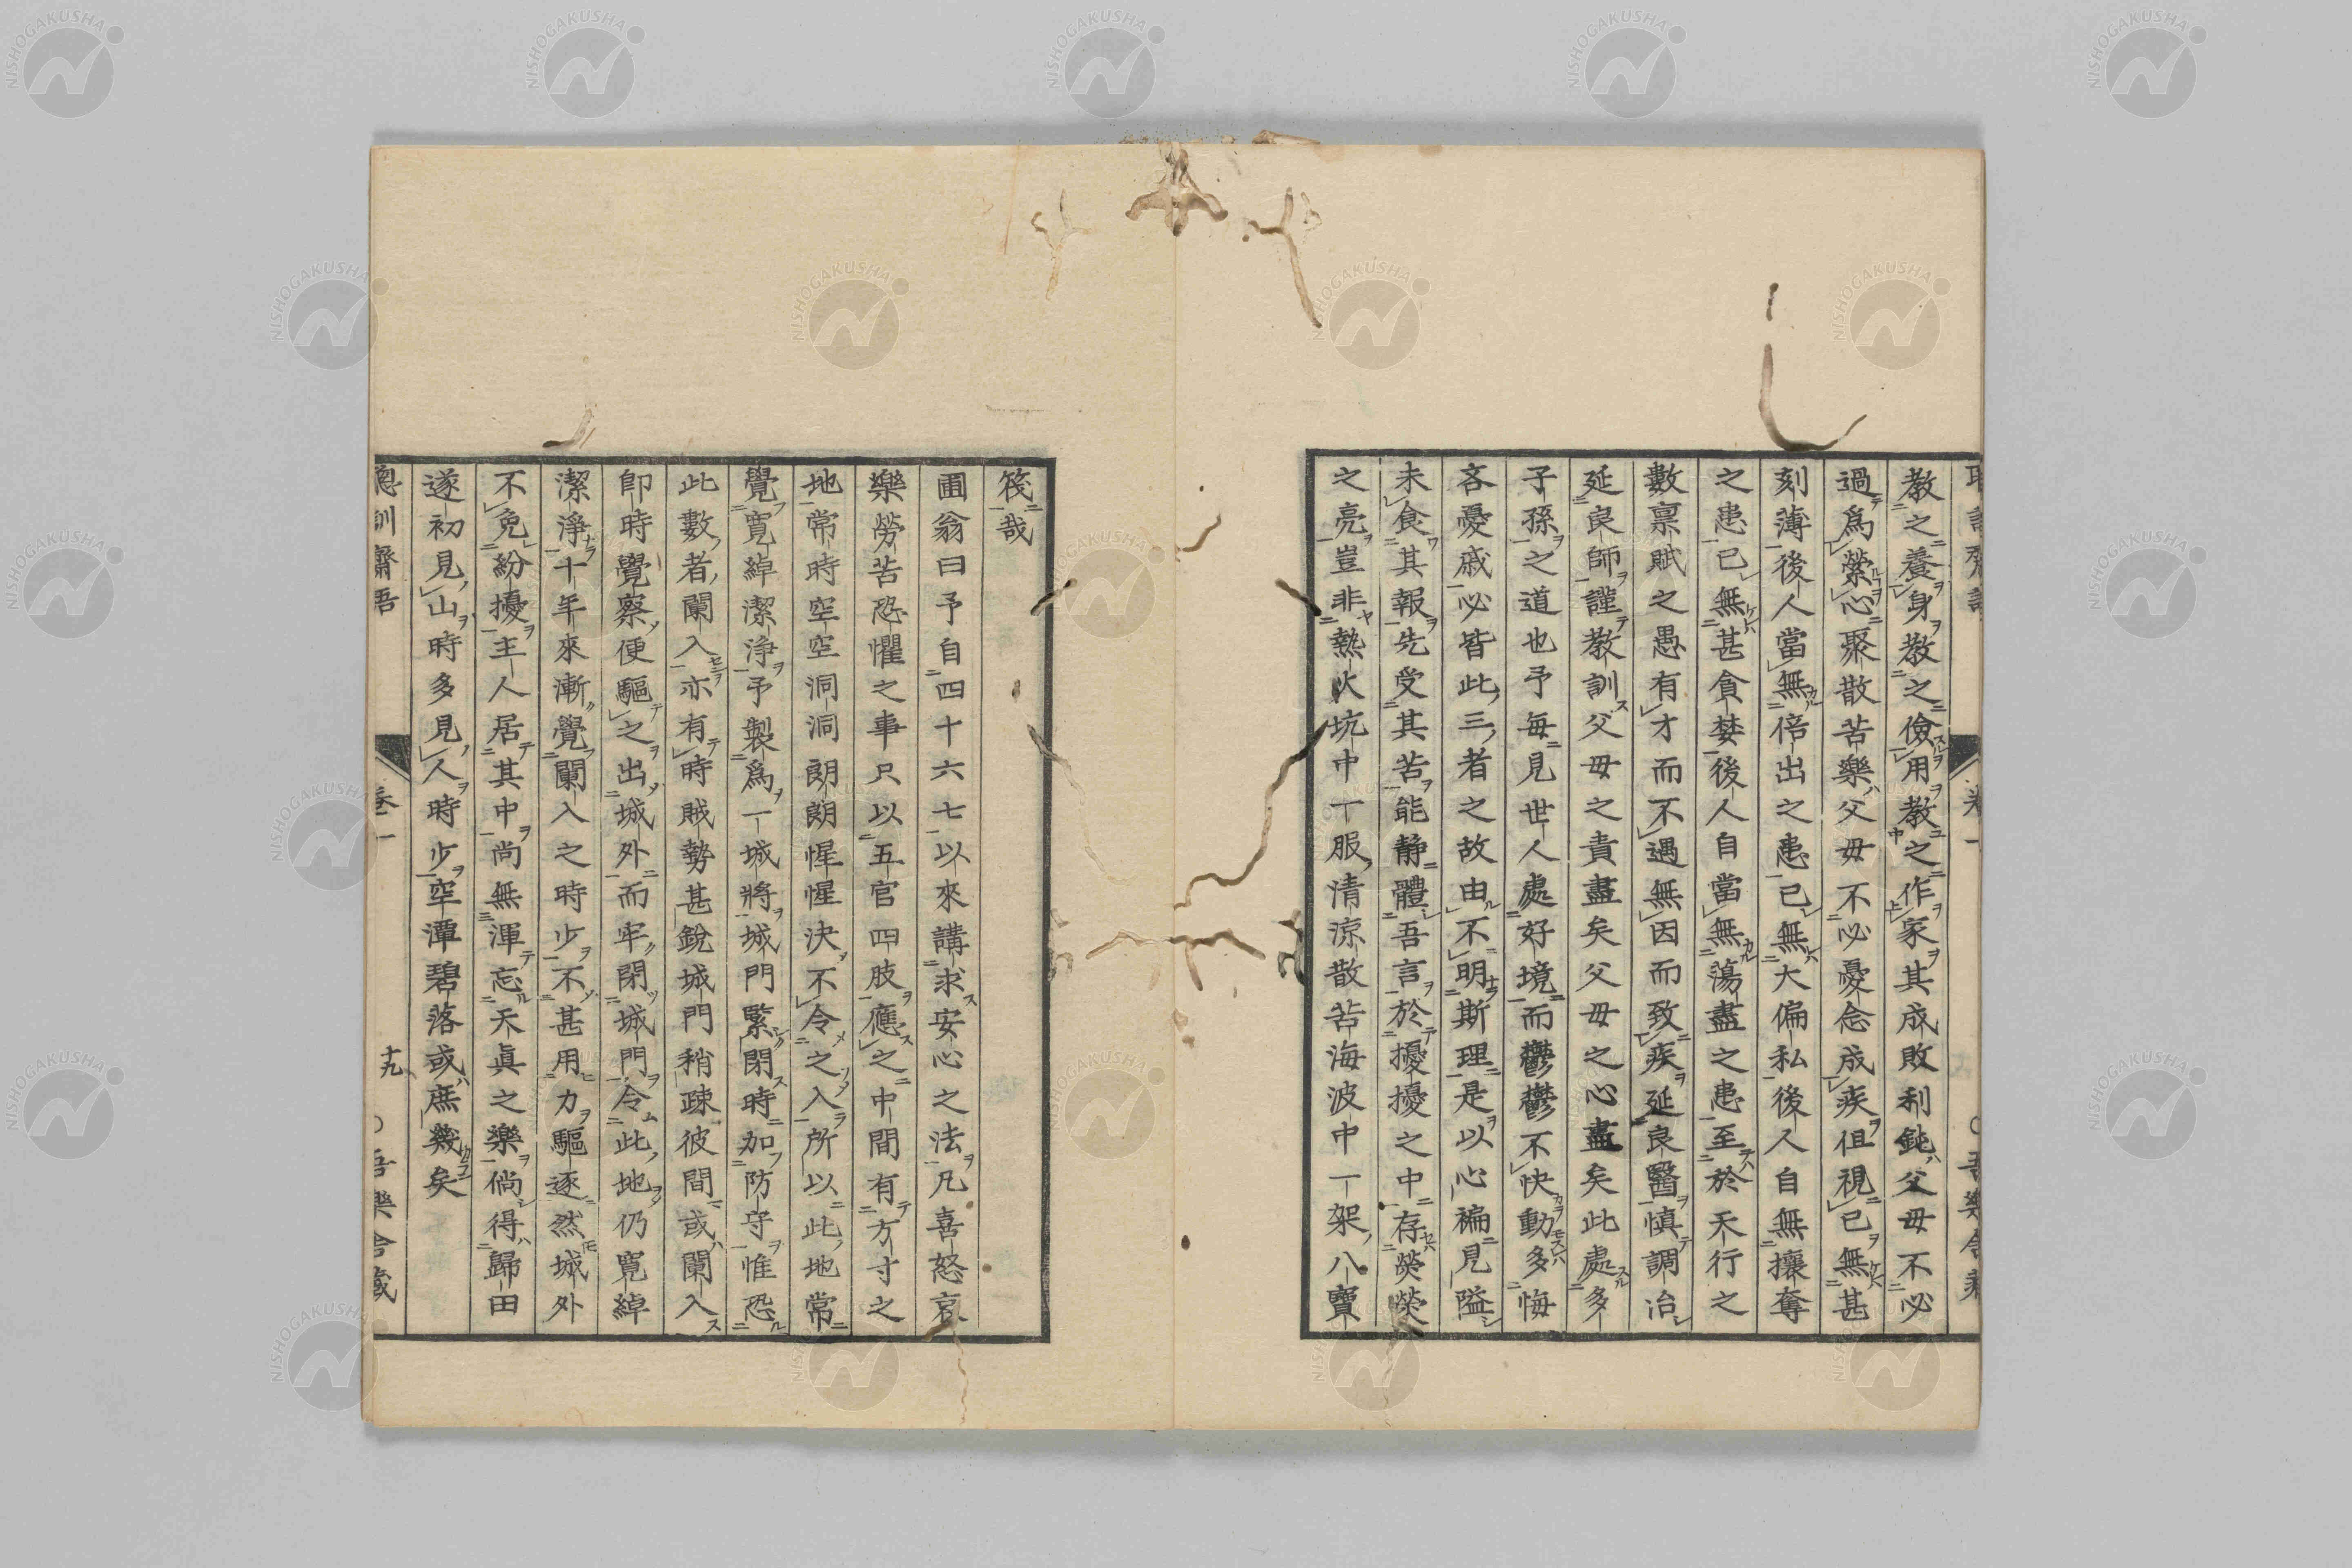 教之養身教之儉用教之作家其成敗利鈍父母不必
過爲縈心聚散苦樂父母不必憂念成疾但視已無甚
刻薄後人當無倍出之患已無大偏私後人自無攘奪
之患已無甚貪婪後人自當無蕩盡之患至於天行之
數禀賦之愚有才而不遇無因而致疾延良醫愼調治
延良師謹教訓父母之責盡矣父母之心盡矣此處多
子孫之道也予每見世人處好境而鬱鬱不快動多悔
吝憂戚必皆此三者之故由不明斯理是以心褊見隘
未食其報先受其苦能靜體吾言於擾擾之中存熒熒
之亮豈非熱火坑中一服清凉散苦海波中一架八寶
筏哉
圃翁曰予自四十六七以來講求安心之法凡喜怒哀
樂勞苦恐懼之事只以五官四肢應之中間有方寸之
地常時空空洞洞朗朗惺惺決不令之入所以此地常
覺寬綽潔淨予製爲一城將城門緊閉時加防守惟恐
此數者闌入亦有時賊勢甚銳城門稍疎彼間或闌入
即時覺察便驅之出城外而牢閉城門令此地仍寬綽
潔淨十年來漸覺闌入之時少不甚用力驅逐然城外
不免紛擾主人居其中尚無渾忘天眞之樂倘得歸田
遂初見山時多見人時少空潭碧落或庶幾矣
聰訓齋語 卷一 十九 吾樂舎藏